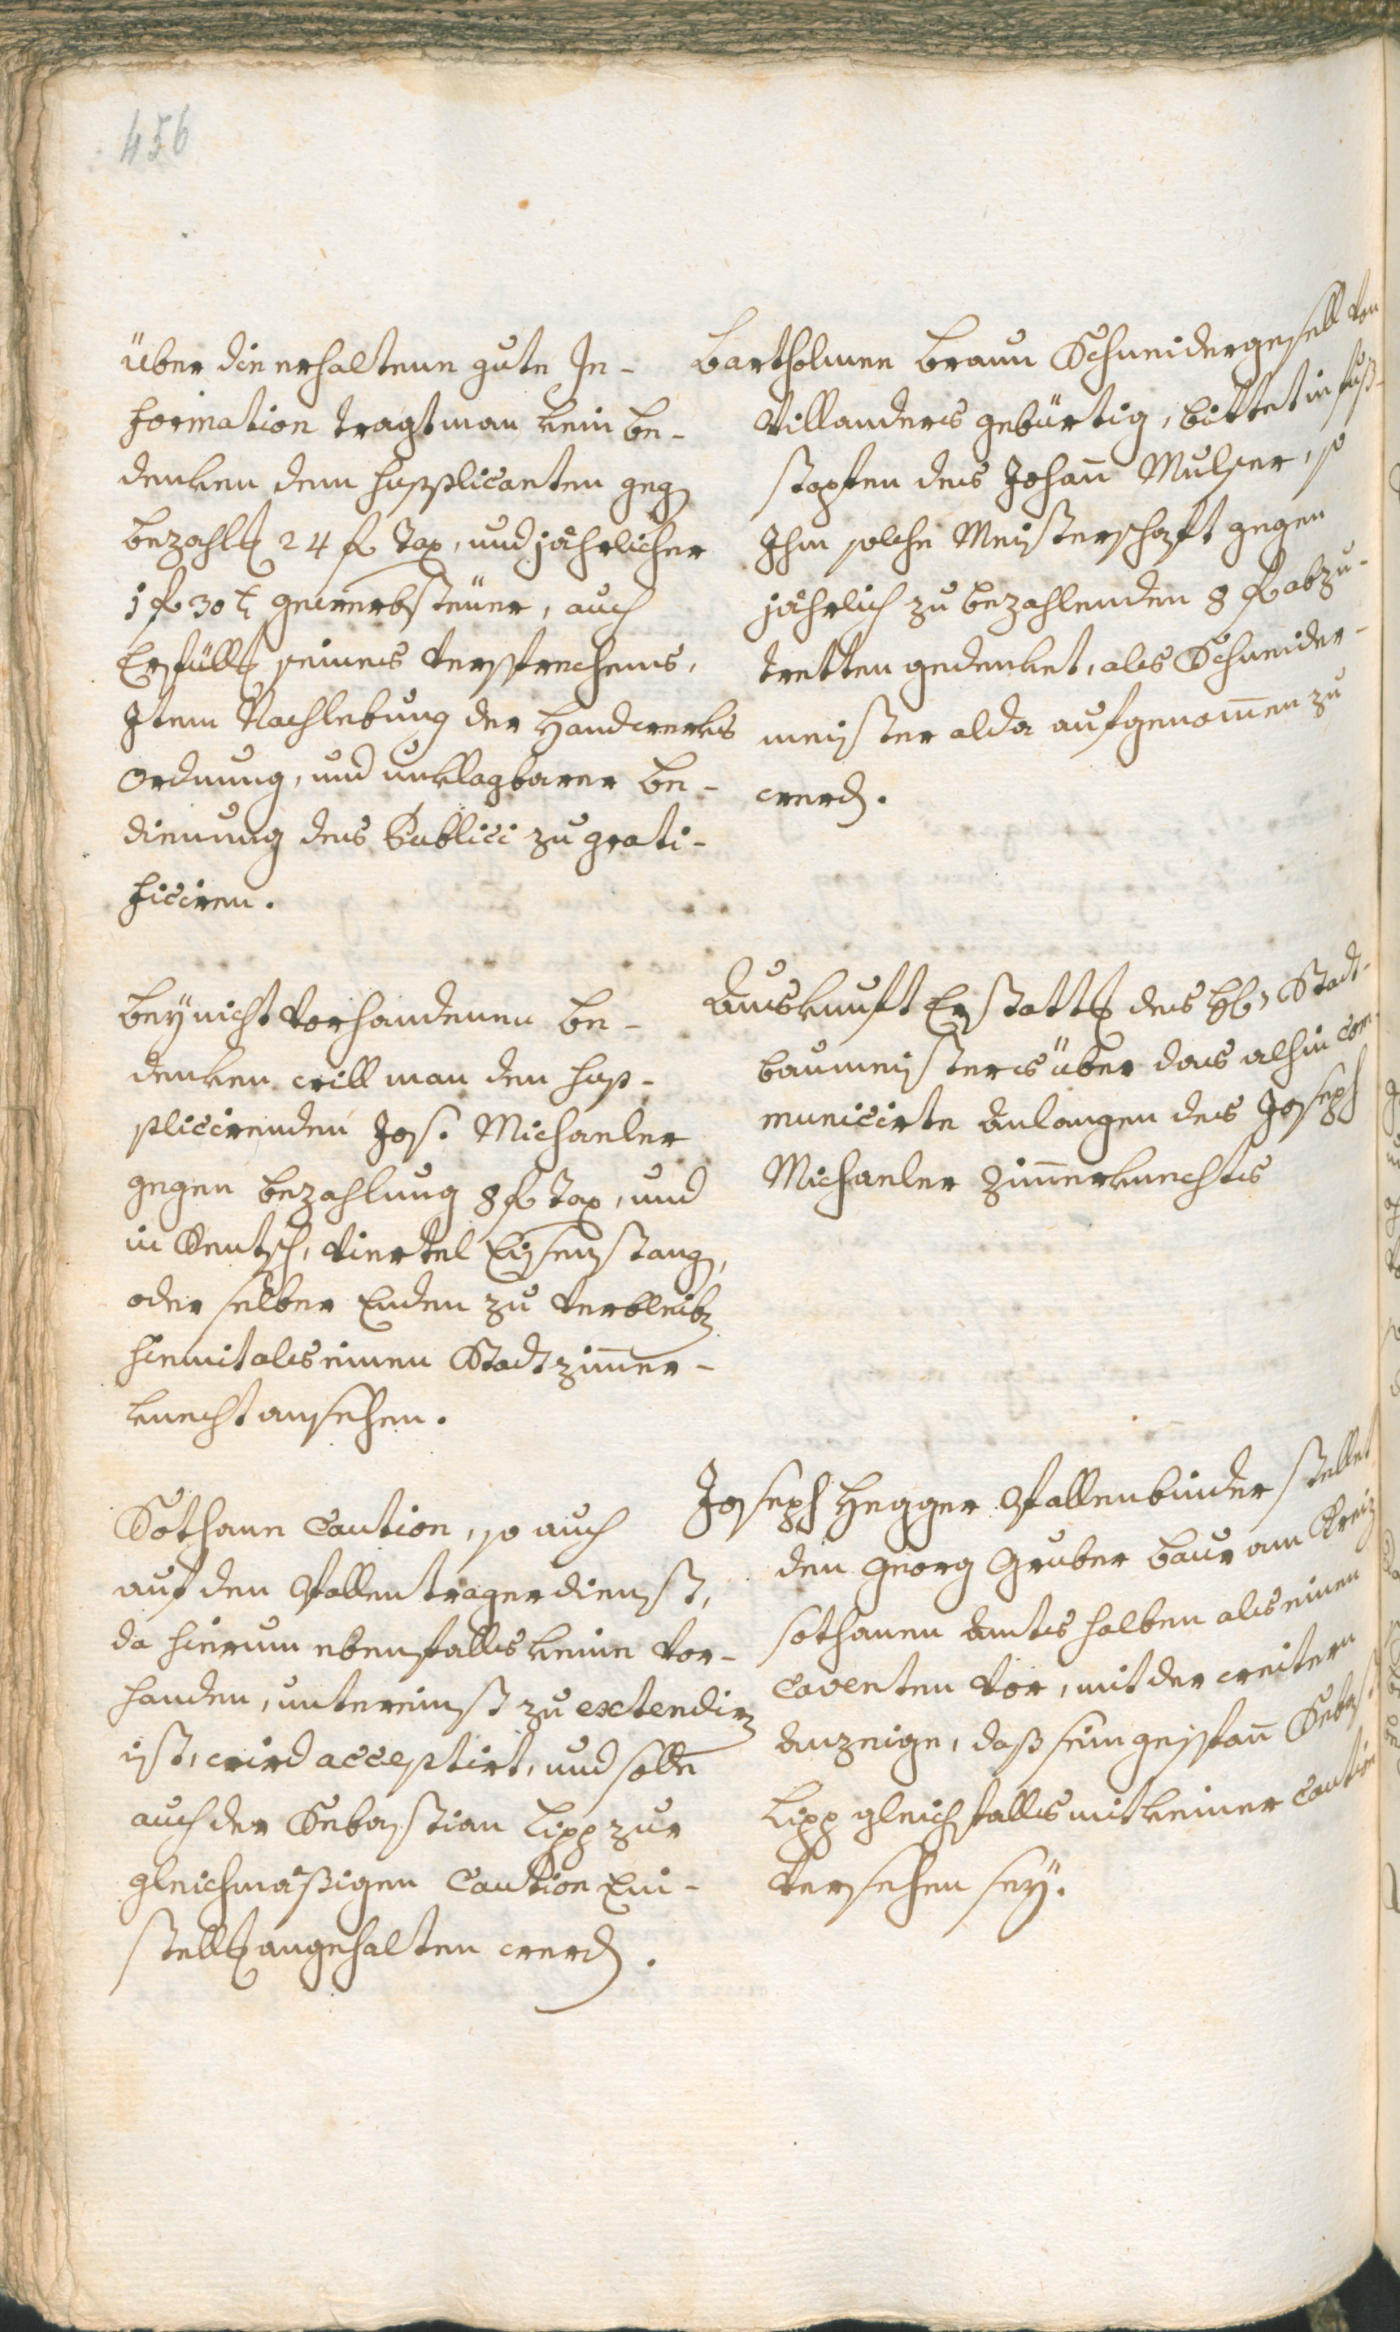 456
über die erhaltene gute In-
formation tragt man kein be-
denken dem supplicanten geg
bezahlg 24 f Tax, und jährlicher
1 f 30 x gewerbsteüer, auch
Erfüllg seines versprechens,
Item Nachlebung der Handwerks
ordnung, und unklagbarer be-
dienung des Publici zu grati-
ficiren.
bey nicht vorhandenen be-
denken will man den sup-
plicirenden Jos. Michaeler
gegen bezahlung 8 f Tax, und
in Rentsch, viertel Eisenstang,
oder selber Enden zu verbleib
hiemit als einen Stadtzimer-
knecht ansehen.
Sothane Caution, so auch
auf den Ballentragerdienst,
da hierum ebenfalls keine vor-
handen, untereinst zu extendir
ist, wird acceptirt, und solle
auch der Sebastian Lipp zur
gleichmäßigen Caution Ein-
stellg angehalten werd.
Bartholmee Braun Schneidergesell von
Villanders gebürtig, bittet in fuß-
stapfen des Johan Mulser, so
Ihm solche Meisterschaft gegen
jährlich zu bezahlenden 8 f abzu-
tretten gedenket, als Schneider-
meister alda aufgenomen zu
werd.
Auskunft Erstattg des H: Stadt-
baumeisters über das alhin com-
municirte Anlangen des Joseph
Michaeler Zimerknechts
Joseph Hegger Ballenbinder stellet
den Georg Gruber baur am Kreiz
sothanen Amts halben als einen
Caventen vor, mit der weitern
Anzeige, daß sein gespan Sebast
Lipp gleichfalls mit keiner Caution
versehen sey.